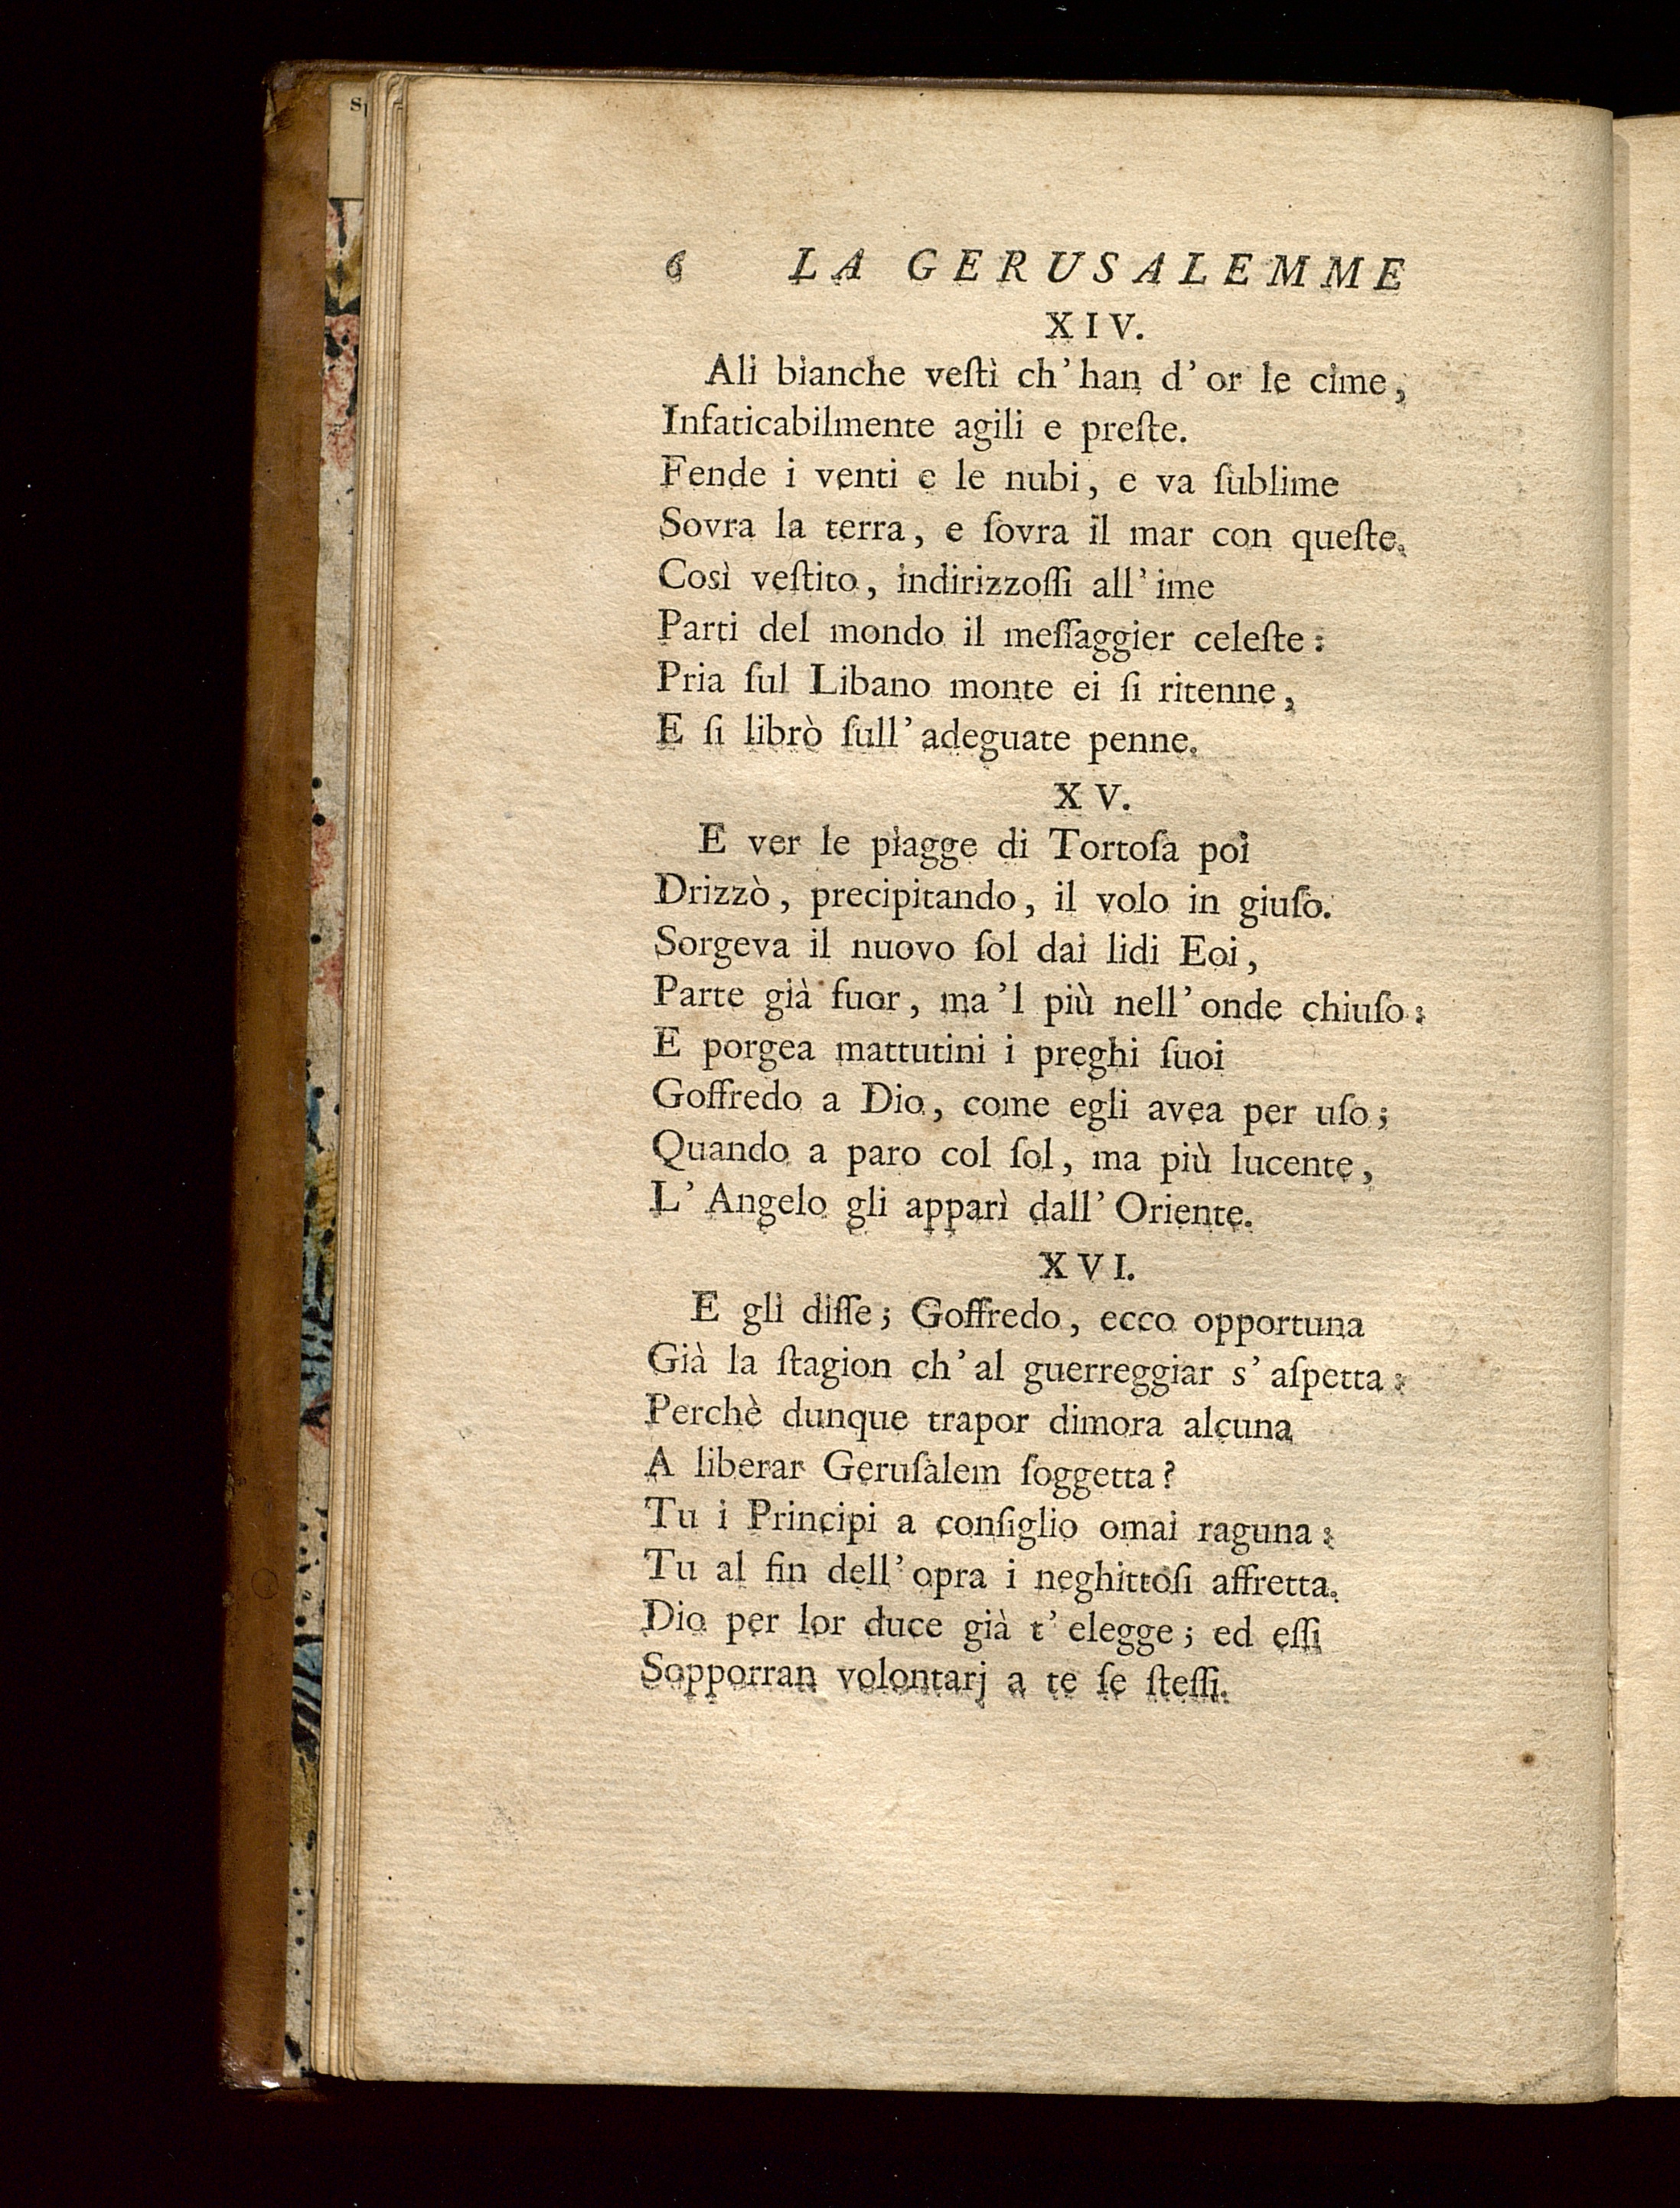 6 LA GERUSALEMME
XIV.
Ali bianche veſtì ch'han d'or le cime,
Infaticabilmente agili e preſte.
Fende i venti e le nubi, e va ſublime
Sovra la terra, e ſovra il mar con queſte.
Così veſtito, indirizzoſſi all'ime
Parti del mondo il meſſaggier celeſte:
Pria ſul Libano monte ei ſi ritenne,
E ſi librò ſull'adeguate penne.
XV.
E ver le piagge di Tortoſa poi
Drizzò, precipitando, il volo in giuſo.
Sorgeva il nuovo ſol dai lidi Eoi,
Parte già fuor, ma'l più nell'onde chiuſo:
E porgea mattutini i preghi ſuoi
Goffredo a Dio, come egli avea per uſo;
Quando a paro col ſol, ma più lucente,
L'Angelo gli apparì dall'Oriente.
XVI.
E gli diſſe; Goffredo, ecco opportuna
Già la ſtagion ch'al guerreggiar s'aſpetta:
Perchè dunque trapor dimora alcuna
A liberar Geruſalem ſoggetta?
Tu i Principi a conſiglio omai raguna:
Tu al fin dell'opra i neghittoſi affretta.
Dio per lor duce già t'elegge; ed eſſi
Sopporran volontarj a te ſe ſteſſi.